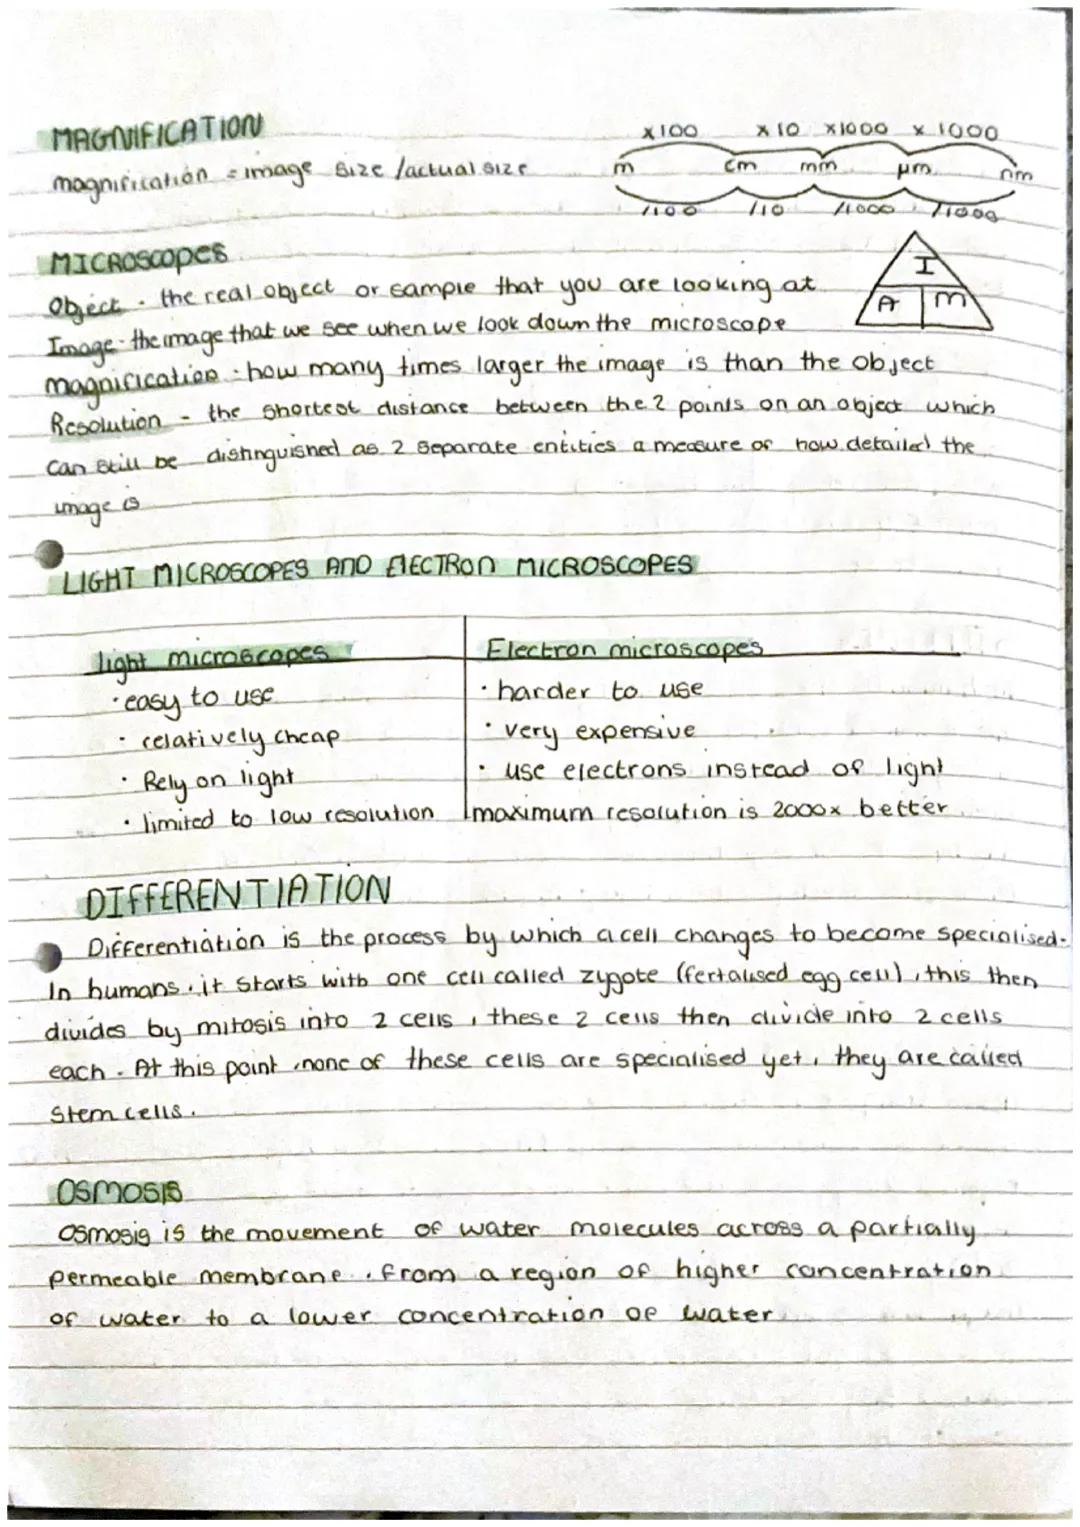 MAGNIFICATION
magnification = image size /actual size
x100 x10 x1000 x 1000
m cm mm μm nm
/100 /10 /1000 /1000
MICROSCOPES
I
A m
Object - the real object or sample that you are looking at
Image - the image that we see when we look down the microscope
magnification - how many times larger the image is than the object
Resolution - the shortest distance between the 2 points on an object which
can still be distinguished as 2 separate entities a measure of how detailed the
image is
LIGHT MICROSCOPES AND ELECTRON MICROSCOPES
light microscopes Electron microscopes
· easy to use · harder to use
· relatively cheap · very expensive
· Rely on light · use electrons instead of light
· limited to low resolution maximum resolution is 2000x better
DIFFERENTIATION
Differentiation is the process by which a cell changes to become specialised.
In humans, it starts with one cell called zygote (fertalised egg cell), this then
divides by mitosis into 2 cells, these 2 cells then divide into 2 cells
each. At this point, none of these cells are specialised yet, they are called
stem cells.
OSMOSIS
Osmosis is the movement of water molecules across a partially
permeable membrane, from a region of higher concentration
of water to a lower concentration of water